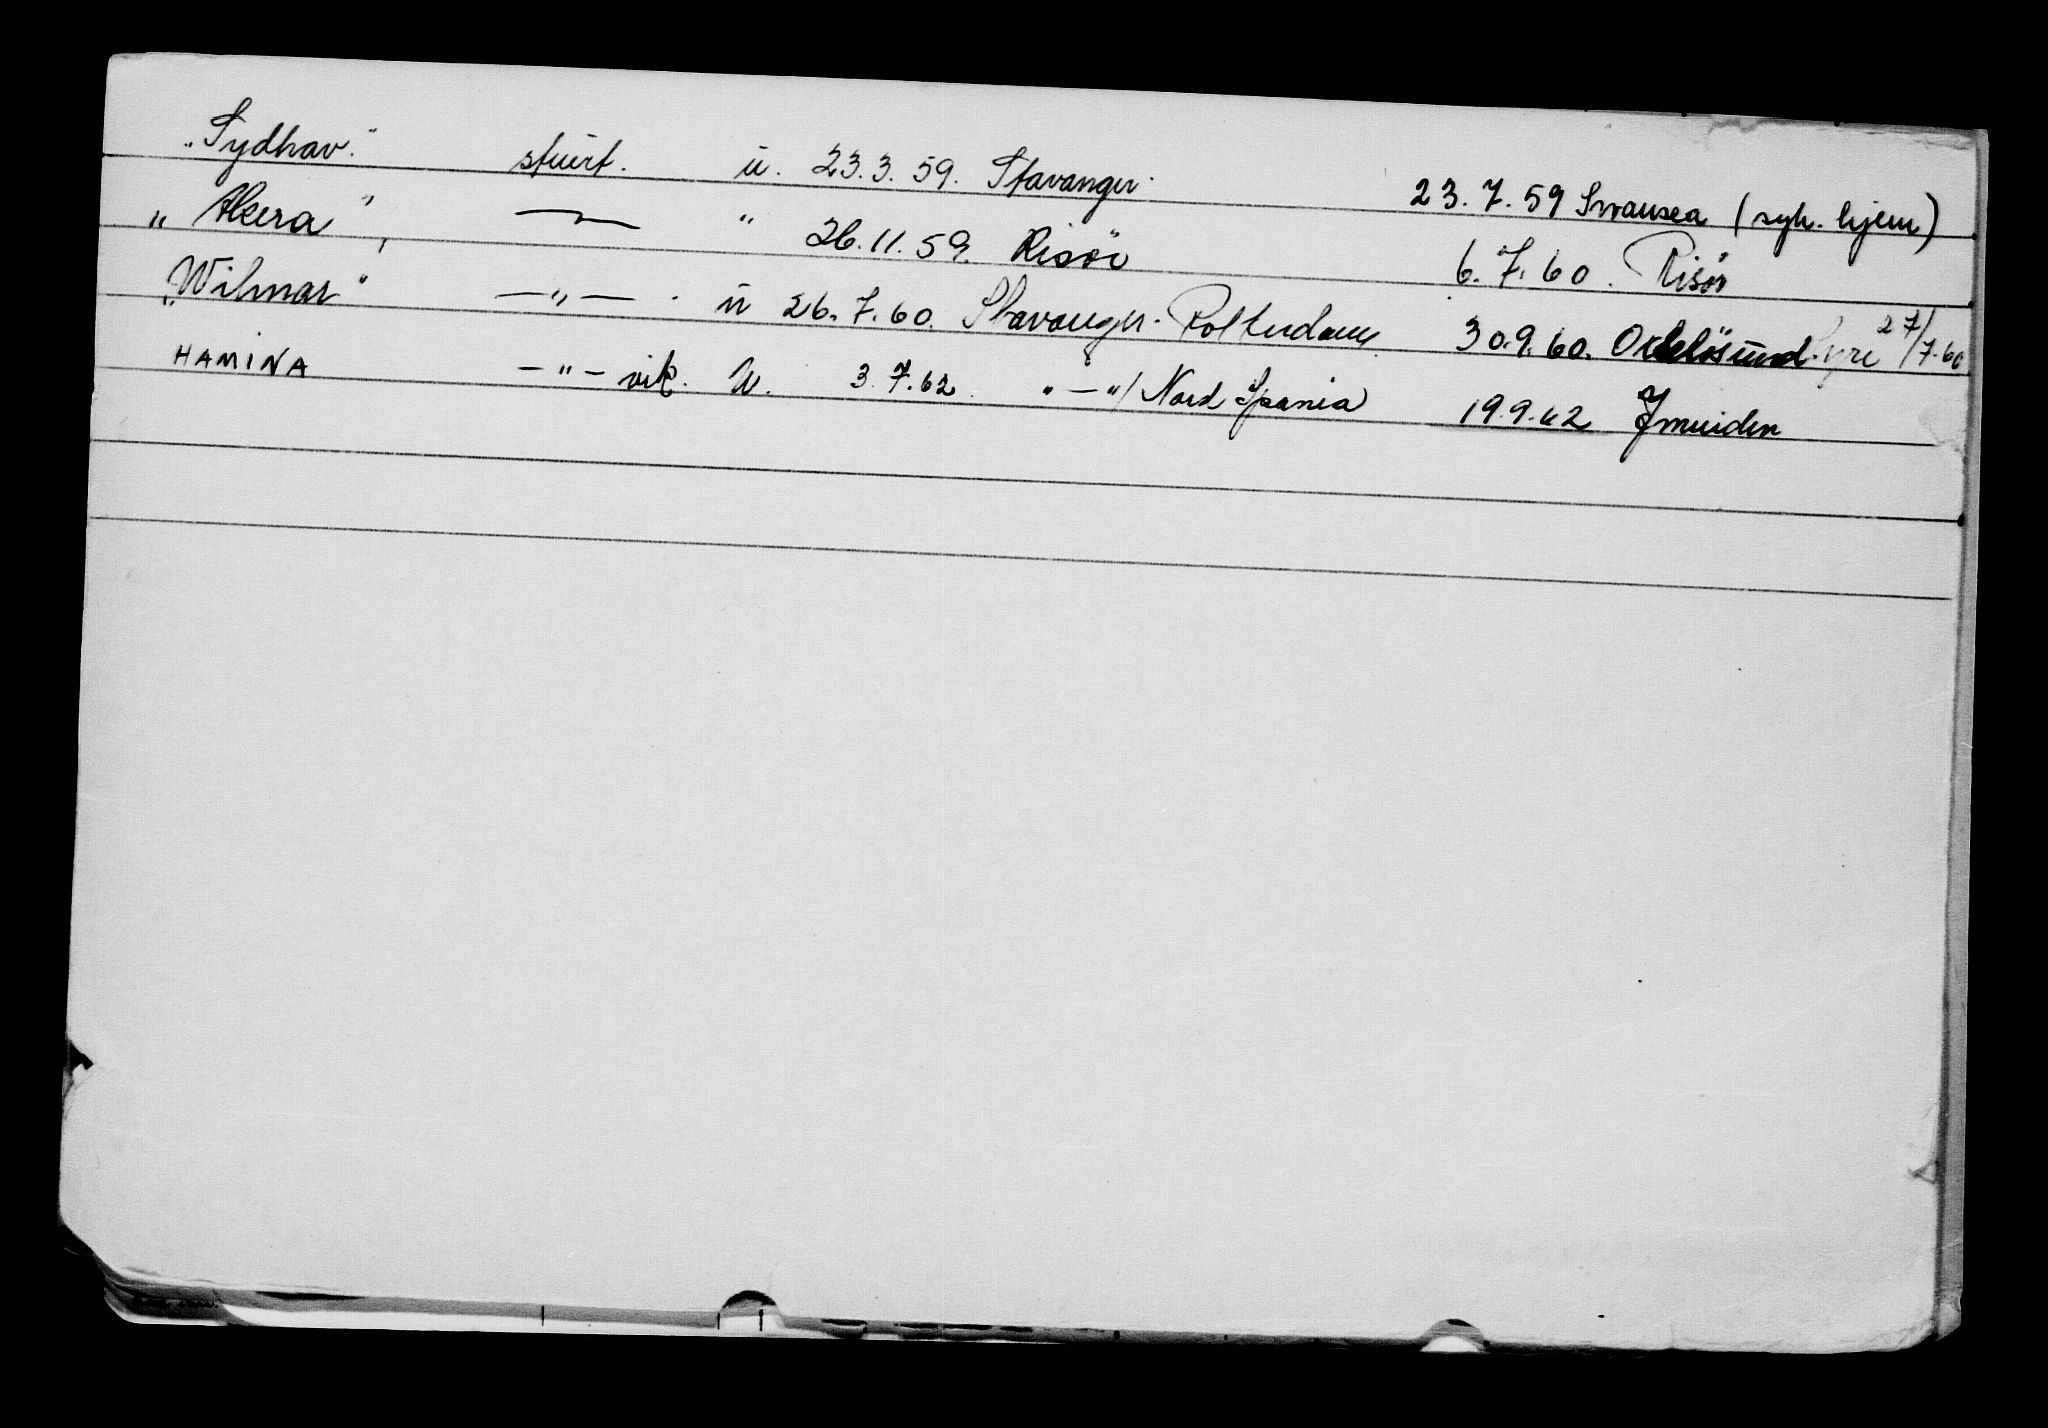 "Sydhav." stuert. u. 23.3.59. Stavanger. 23.7.59 Swansea (syk. hjem)
"Akera", " 26.11.59. Risör 6.7.60. Risör
"Wilmar" —"— . u 26.7.60. Stavanger. Rotterdam 30.9.60. Oxelösund. hyre 27/7.60
HAMINA —"— vik. u. 3.7.62. "—"/ Nord Spania 19.9.62 Jmuiden